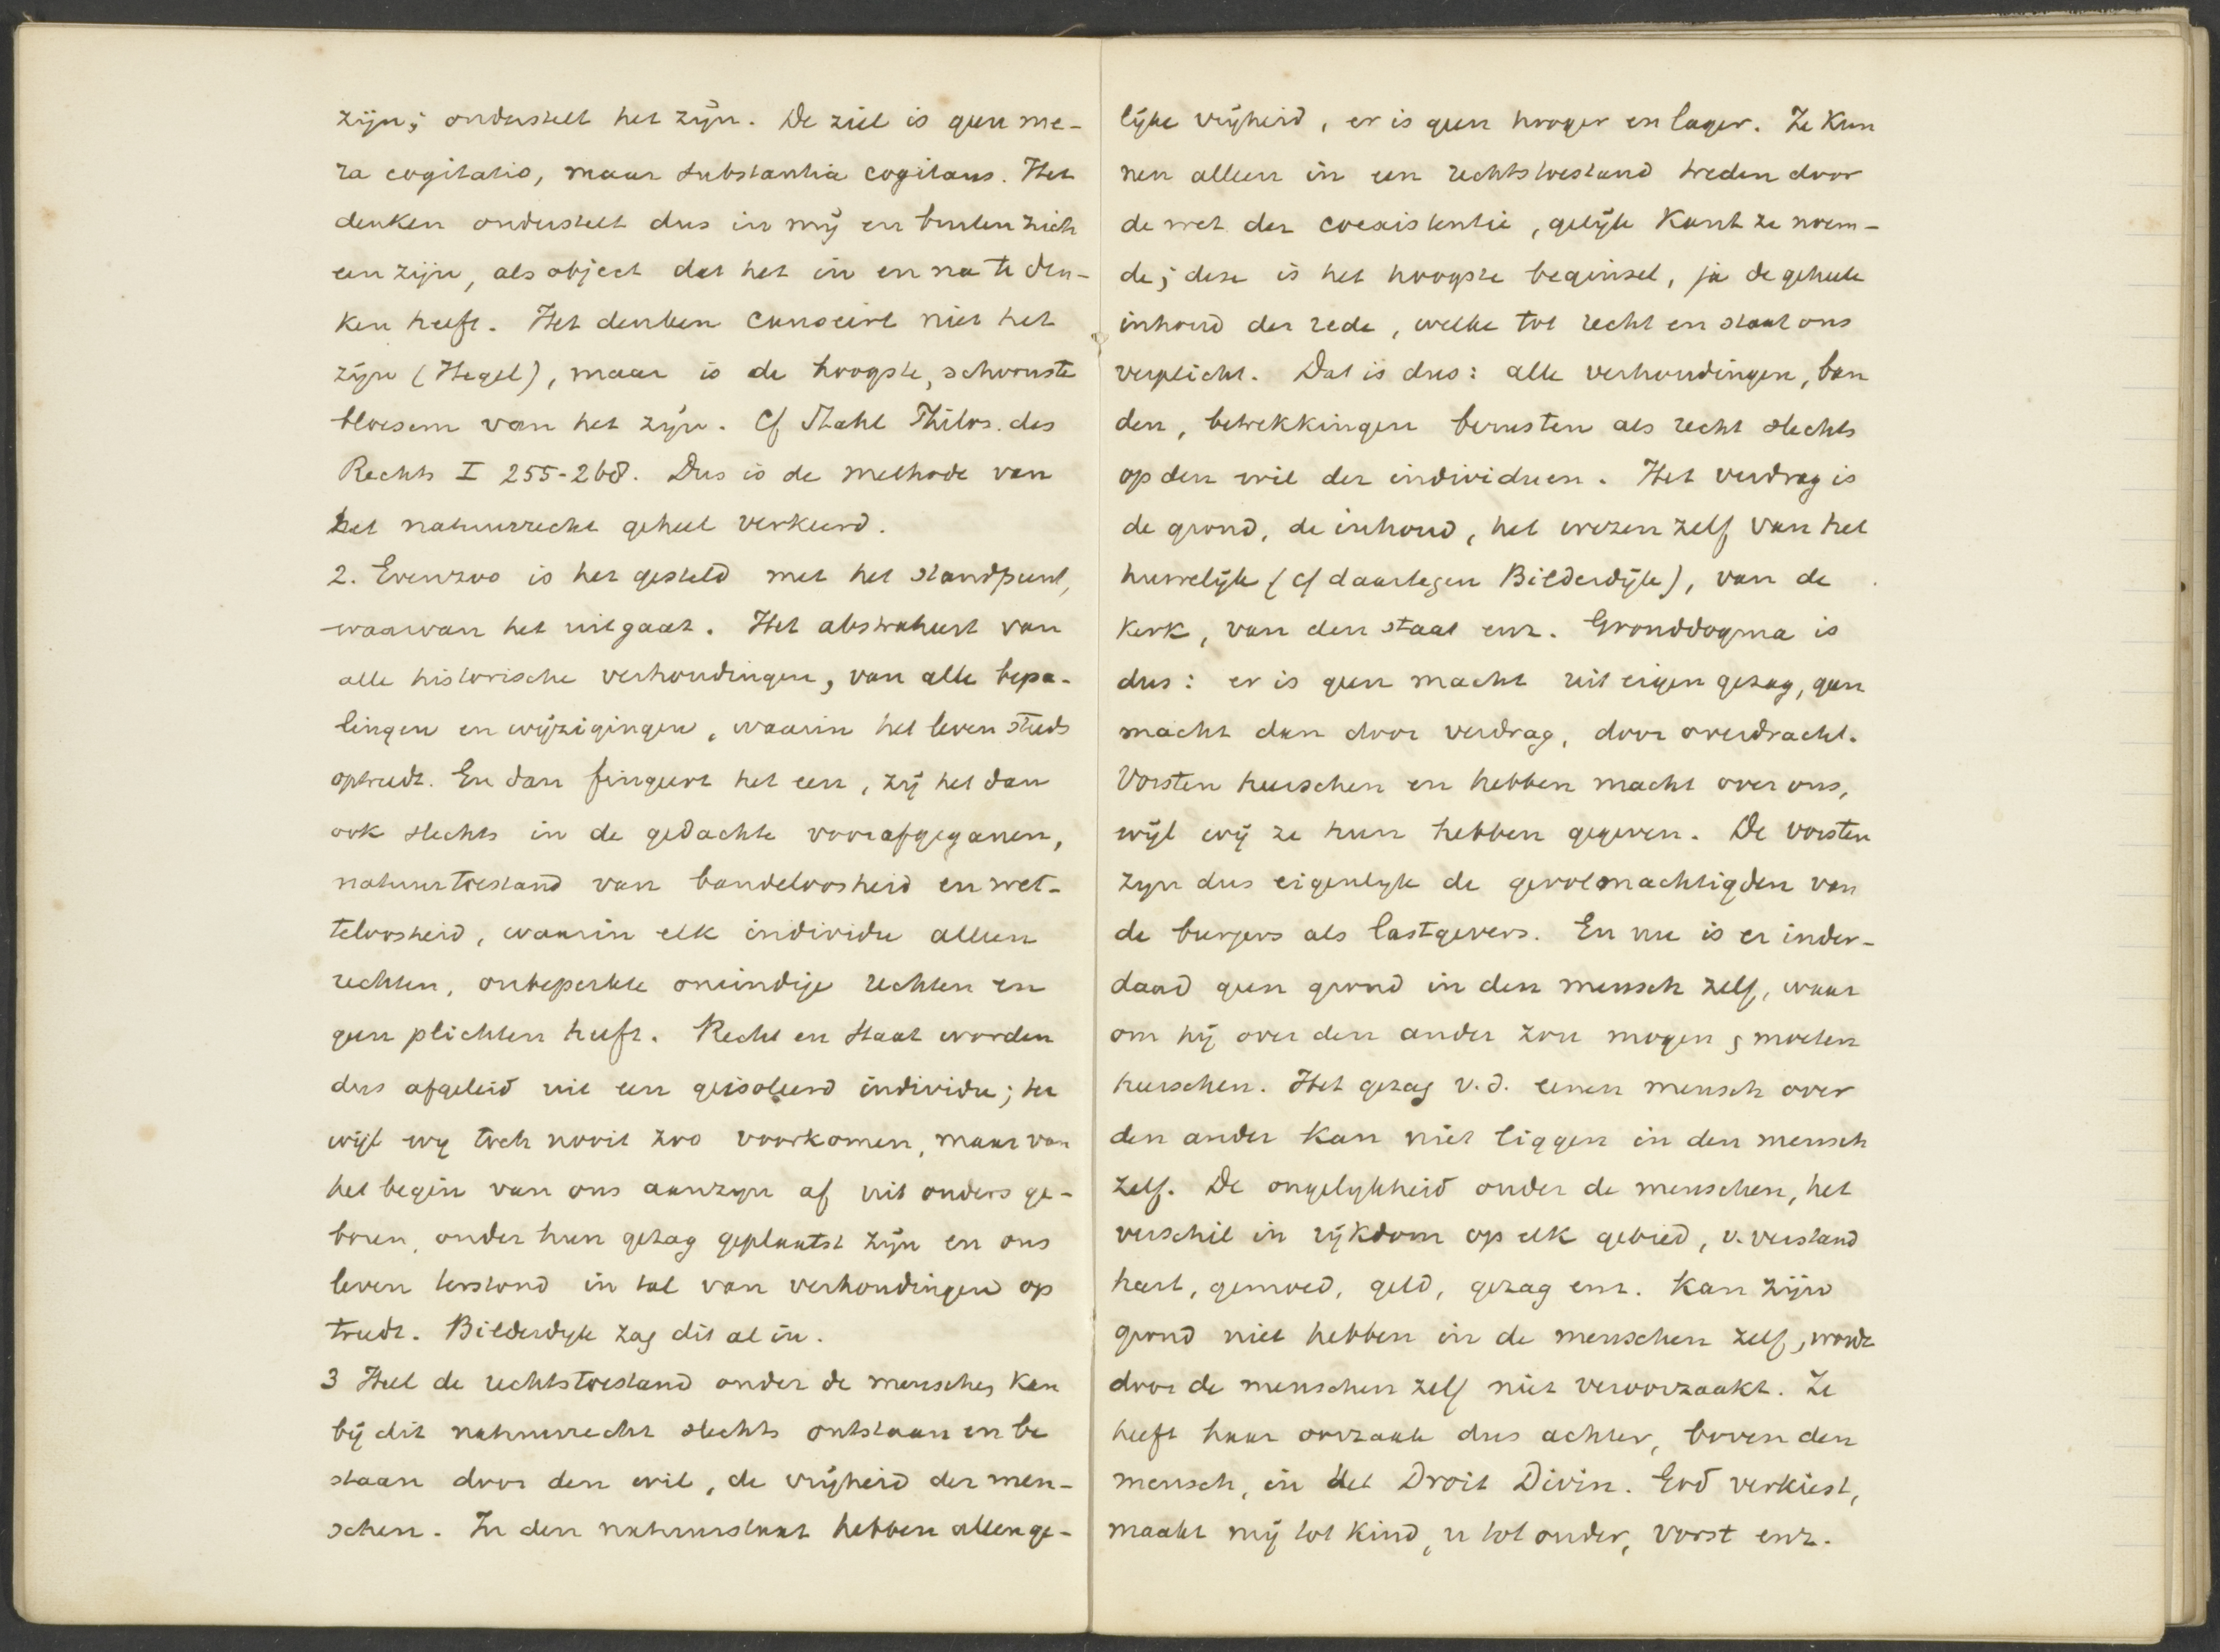 zijn; onderstelt het zijn. De ziel is geen me-
ra cogitatio, maar substantia cogitans. Het
denken onderstelt dus in mij en buiten zich
een zijn, als object dat het in en na te den-
ken heeft. Het denken censeirt niet het
zijn (Hegel), maar is de hoogste, schoonste
bloesem van het zijn. Cf Stahl Philos. des
Rechts I 255-268. Dus is de methode van
het natuurrecht geheel verkeerd.
2. Evenzoo is het gesteld met het standpunt,
waarvan het uitgaat. Het abstraheert van
alle historische verhoudingen, van alle bepa-
lingen en wijzigingen, waarin het leven steeds
optreedt. En dan fingeert het een, zij het dan
ook slechts in de gedachte voorafgeganen,
natuurtoestand van bandeloosheid en wet-
teloosheid, waarin elk individu alleen
rechten, onbeperkte oneindige rechten en
geen plichten heeft. Recht en Staat worden
dus afgeleid uit een geisoleerd individu; ter
wijl wy toch nooit zoo voorkomen, maar van
het begin van ons aanzyn af uit ouders ge-
boren, onder hun gezag geplaatst zijn en ons
leven terstond in tal van verhoudingen op
treedt. Bilderdyk zag dit al in.
3 Heel de rechtstoestand onder de menschen kan
bij dit natuurrecht slechts ontstaan en be
staan door den wil, de vrijheid der men-
schen. In den natuurstaat hebben allen ge-
lijke vrijheid, er is geen hooger en lager. Ze kun
nen alleen in een rechtstoestand treden door
de wet der coexistentie, gelijk Kant ze noem-
de; deze is het hoogste beginsel, ja de geheele
inhoud der rede, welke tot recht en staat ons
verplicht. Dat is dus: alle verhoudingen, ban
den, betrekkingen berusten als recht slechts
op den wil der individuen. Het verdrag is
de grond, de inhoud, het wezen zelf van het
huwelijk (cf daartegen Bilderdijk), van de
Kerk, van den staat enz. Gronddogma is
dus: er is geen macht uit eigen gezag, geen
macht dan door verdrag, door overdracht.
Vorsten heerschen en hebben macht over ons,
wijl wij ze hun hebben gegeven. De vorsten
zyn dus eigenlyk de gevolmachtigden van
de burgers als lastgevers. En nu is er inder-
daad geen grond in den mensch zelf, waar
om hij over den ander zou mogen, moeten
heerschen. Het gezag v.d. eenen mensch over
den ander kan niet liggen in den mensch
zelf. De ongelykheid onder de menschen, het
verschil in rijkdom op elk gebied, v. verstand
hart, gemoed, geld, gezag enz. kan zijn
grond niet hebben in de menschen zelf, wordt
door de menschen zelf niet veroorzaakt. Ze
heeft haar oorzaak dus achter, boven den
mensch, in het Droit Divin. God verkiest,
maakt mij tot kind, u tot ouder, vorst enz.